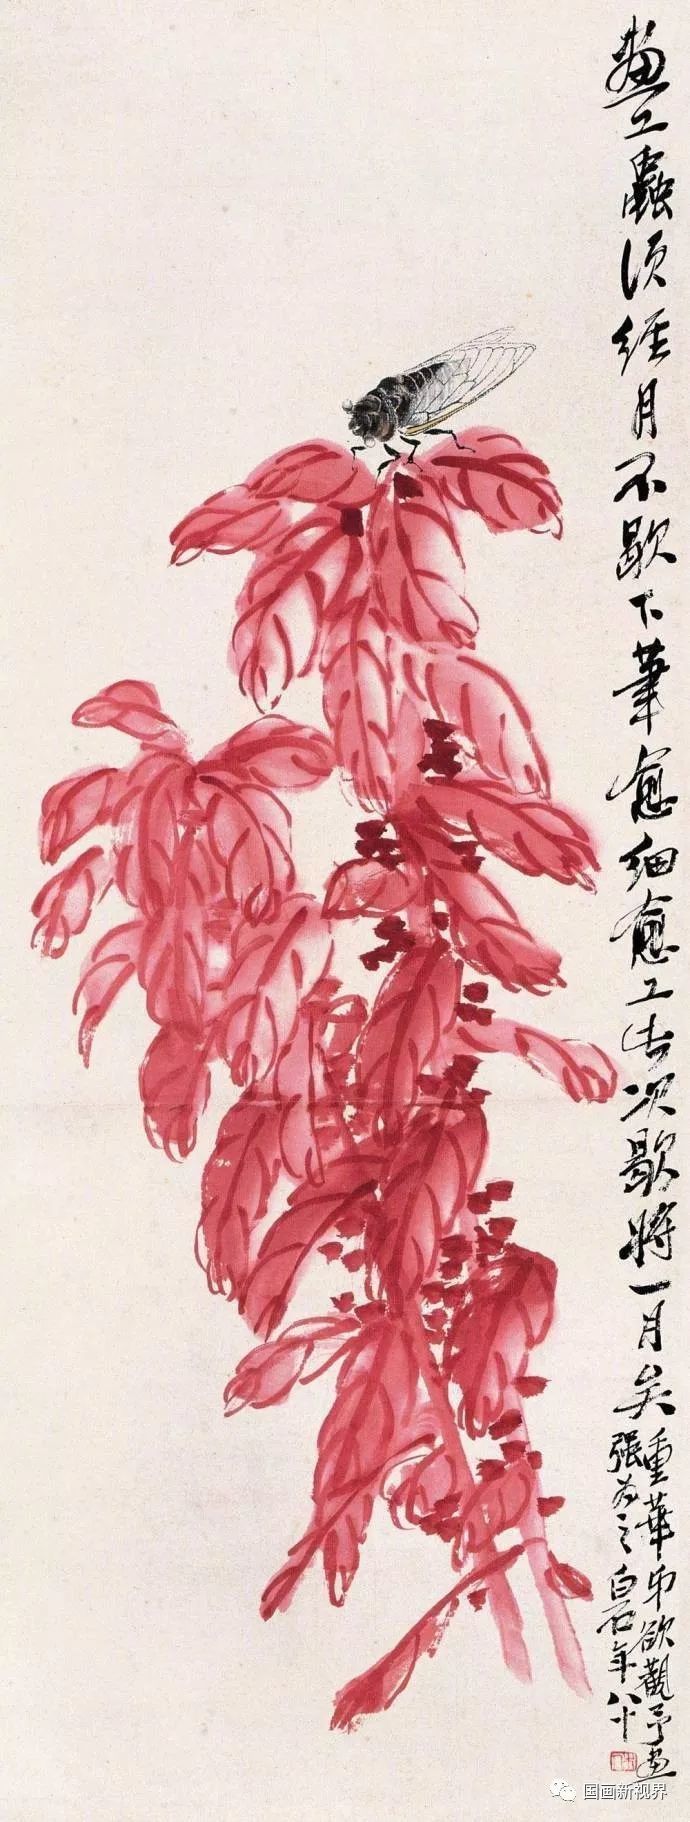 畫工蟲須經月不歇下筆愈細愈工此次歇將一月矣
重華弟欲觀予画
強为之白石年八十
国画新视界